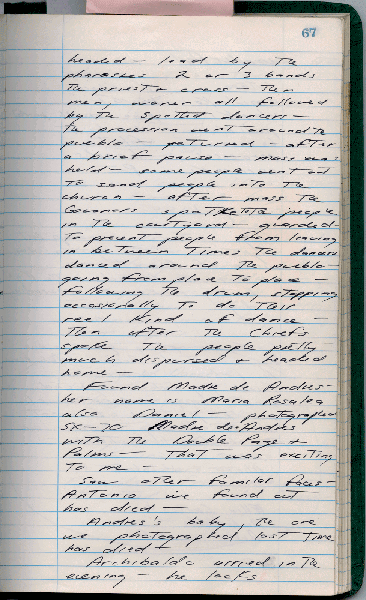 67
headed — lead by the
pharasies 2 or 3 bands
the priest & cross — then
men, women all followed
by the spotted dancers —
the procession went around the
pueblo — returned — after
a brief pause — mass was
held — some people went out
to send people into the
church — after mass the
Governors spoke to the people
in the courtyard — guarded
to prevent people from leaving
in between times the dancers
danced around the pueblo —
going from place to place —
following the drum, stopping
occasionally to do their
reel kind of dance —
Then after the Chiefs
spoke the people pretty
much dispursed & headed
home —
Found Madre de Andres —
her name is Maria Rosalea
also Daniel — photographed
SX-70 Madre de Andres
with the Double Page &
Palms — that was exciting
to me —
Saw other familar faces —
Antonio we found out
has died —
Andres's baby, the one
we photographed last time
has died &
Archibaldo arrived in the
evening — he lacks